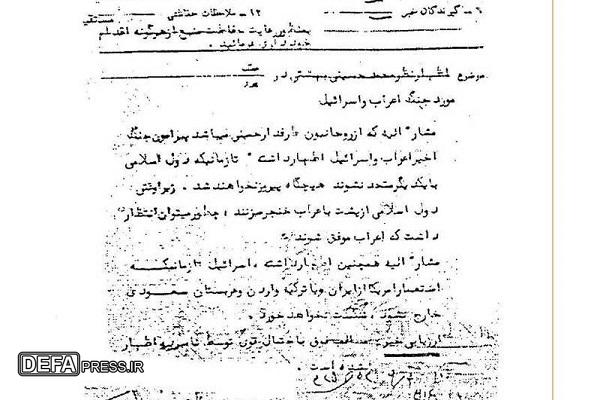 ۶ـ گیرندگان خبر
۱۲ـ ملاحظات حفاظتی
بمنظور رعایت حفاظت منبع از هرگونه اقدام
خودداری فرمائید.
موضوع اظهارنظر محمد حسینی بهشتی در
مورد جنگ اعراب و اسرائیل
مشارالیه که از روحانیون طرفدار خمینی میباشد پیرامون جنگ
اخیر اعراب و اسرائیل اظهار داشت تا زمانیکه دول اسلامی
با یکدیگر متحد نشوند هیچگاه پیروز نخواهند شد . زیرا بعضی
دول اسلامی از پشت با اعراب خنجر میزنند ، چطور میتوان انتظار
داشت که اعراب موفق شوند
مشارالیه همچنین اظهار داشت ، اسرائیل تا زمانیکه
استعمار امریکا از ایران و یا ترکیه و اردن و عربستان سعودی
خارج نشود ، شکست نخواهد خورد .
ارزیابی خبر - صدق با احتمال قوی توسط نامبرده اظهار
شده است .
DEFAPRESS.IR